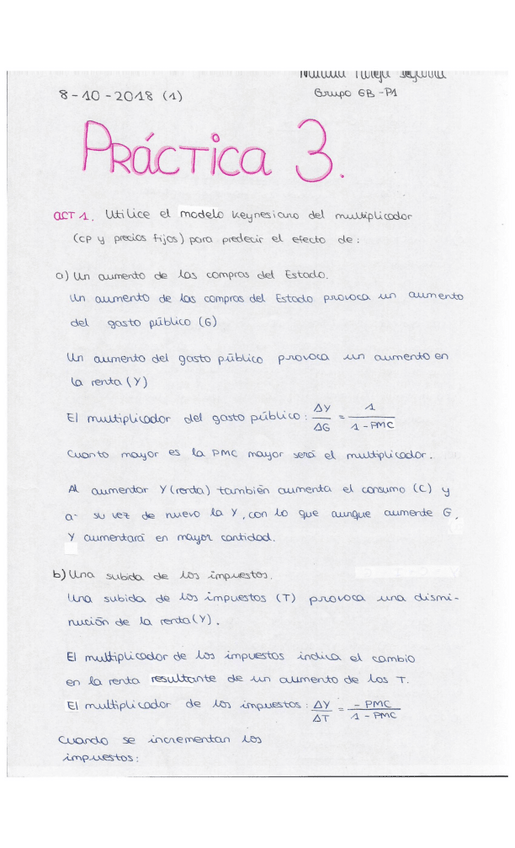 8-10-2018 (1)
Grupo GB-P1
PRÁCTICA 3.
ACT 1. Utilice el modelo keynesiano del multiplicador
(CP y precios fijos) para predecir el efecto de:
a) Un aumento de las compras del Estado.
Un aumento de las compras del Estado provoca un aumento
del gasto público (G)
Un aumento del gasto público provoca un aumento en
la renta (Y)
El multiplicador del gasto público: ΔY/ΔG = 1/1-PMC
Cuanto mayor es la PMC mayor será el multiplicador.
Al aumentar Y (renta) también aumenta el consumo (C) y
a su vez de nuevo la Y, con lo que aunque aumente G,
Y aumentará en mayor cantidad.
b) Una subida de los impuestos.
Una subida de los impuestos (T) provoca una dismi-
nución de la renta (Y).
El multiplicador de los impuestos indica el cambio
en la renta resultante de un aumento de los T.
El multiplicador de los impuestos: ΔY/ΔT = -PMC/1-PMC
Cuando se incrementan los
impuestos: